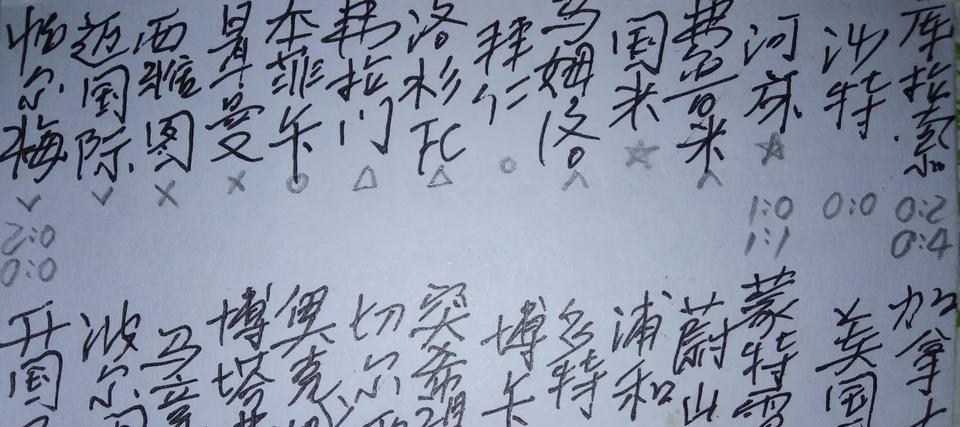 帕尔梅
迈国际
西雅图
曼
本菲卡
弗拉门
洛杉FC
拜仁
马姆洛
国米
弗鲁米
河床
沙特
库拉索
2:0
0:0
1:0
1:1
0:0
0:2
0:4
开国
波尔
马竞
博塔
奥克
切尔
突希望
博卡
多特
浦和
蔚山
蒙特雷
美国
加拿大